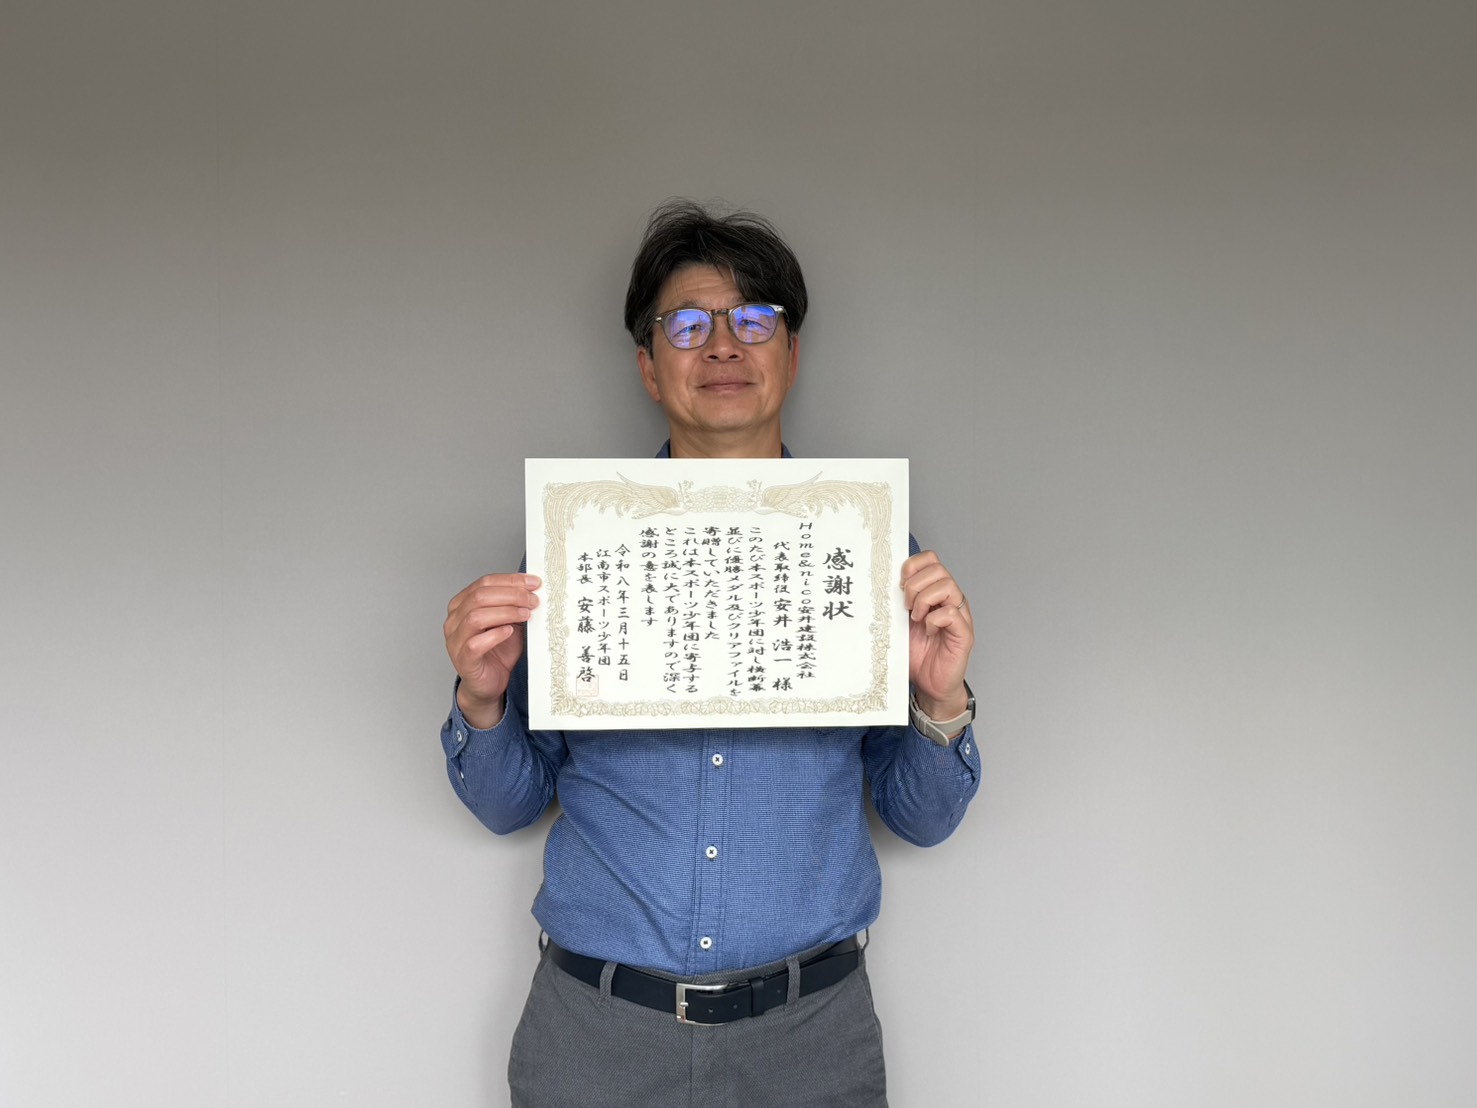 感謝状
Home&nico安井建設株式会社
代表取締役 安井 浩一 様
このたび本スポーツ少年団に対し横断幕
並びに優勝メダル及びクリアファイルを
寄贈していただきました
これは本スポーツ少年団に寄与する
ところ誠に大でありますので深く
感謝の意を表します
令和八年三月十五日
江南市スポーツ少年団
本部長 安藤 善啓